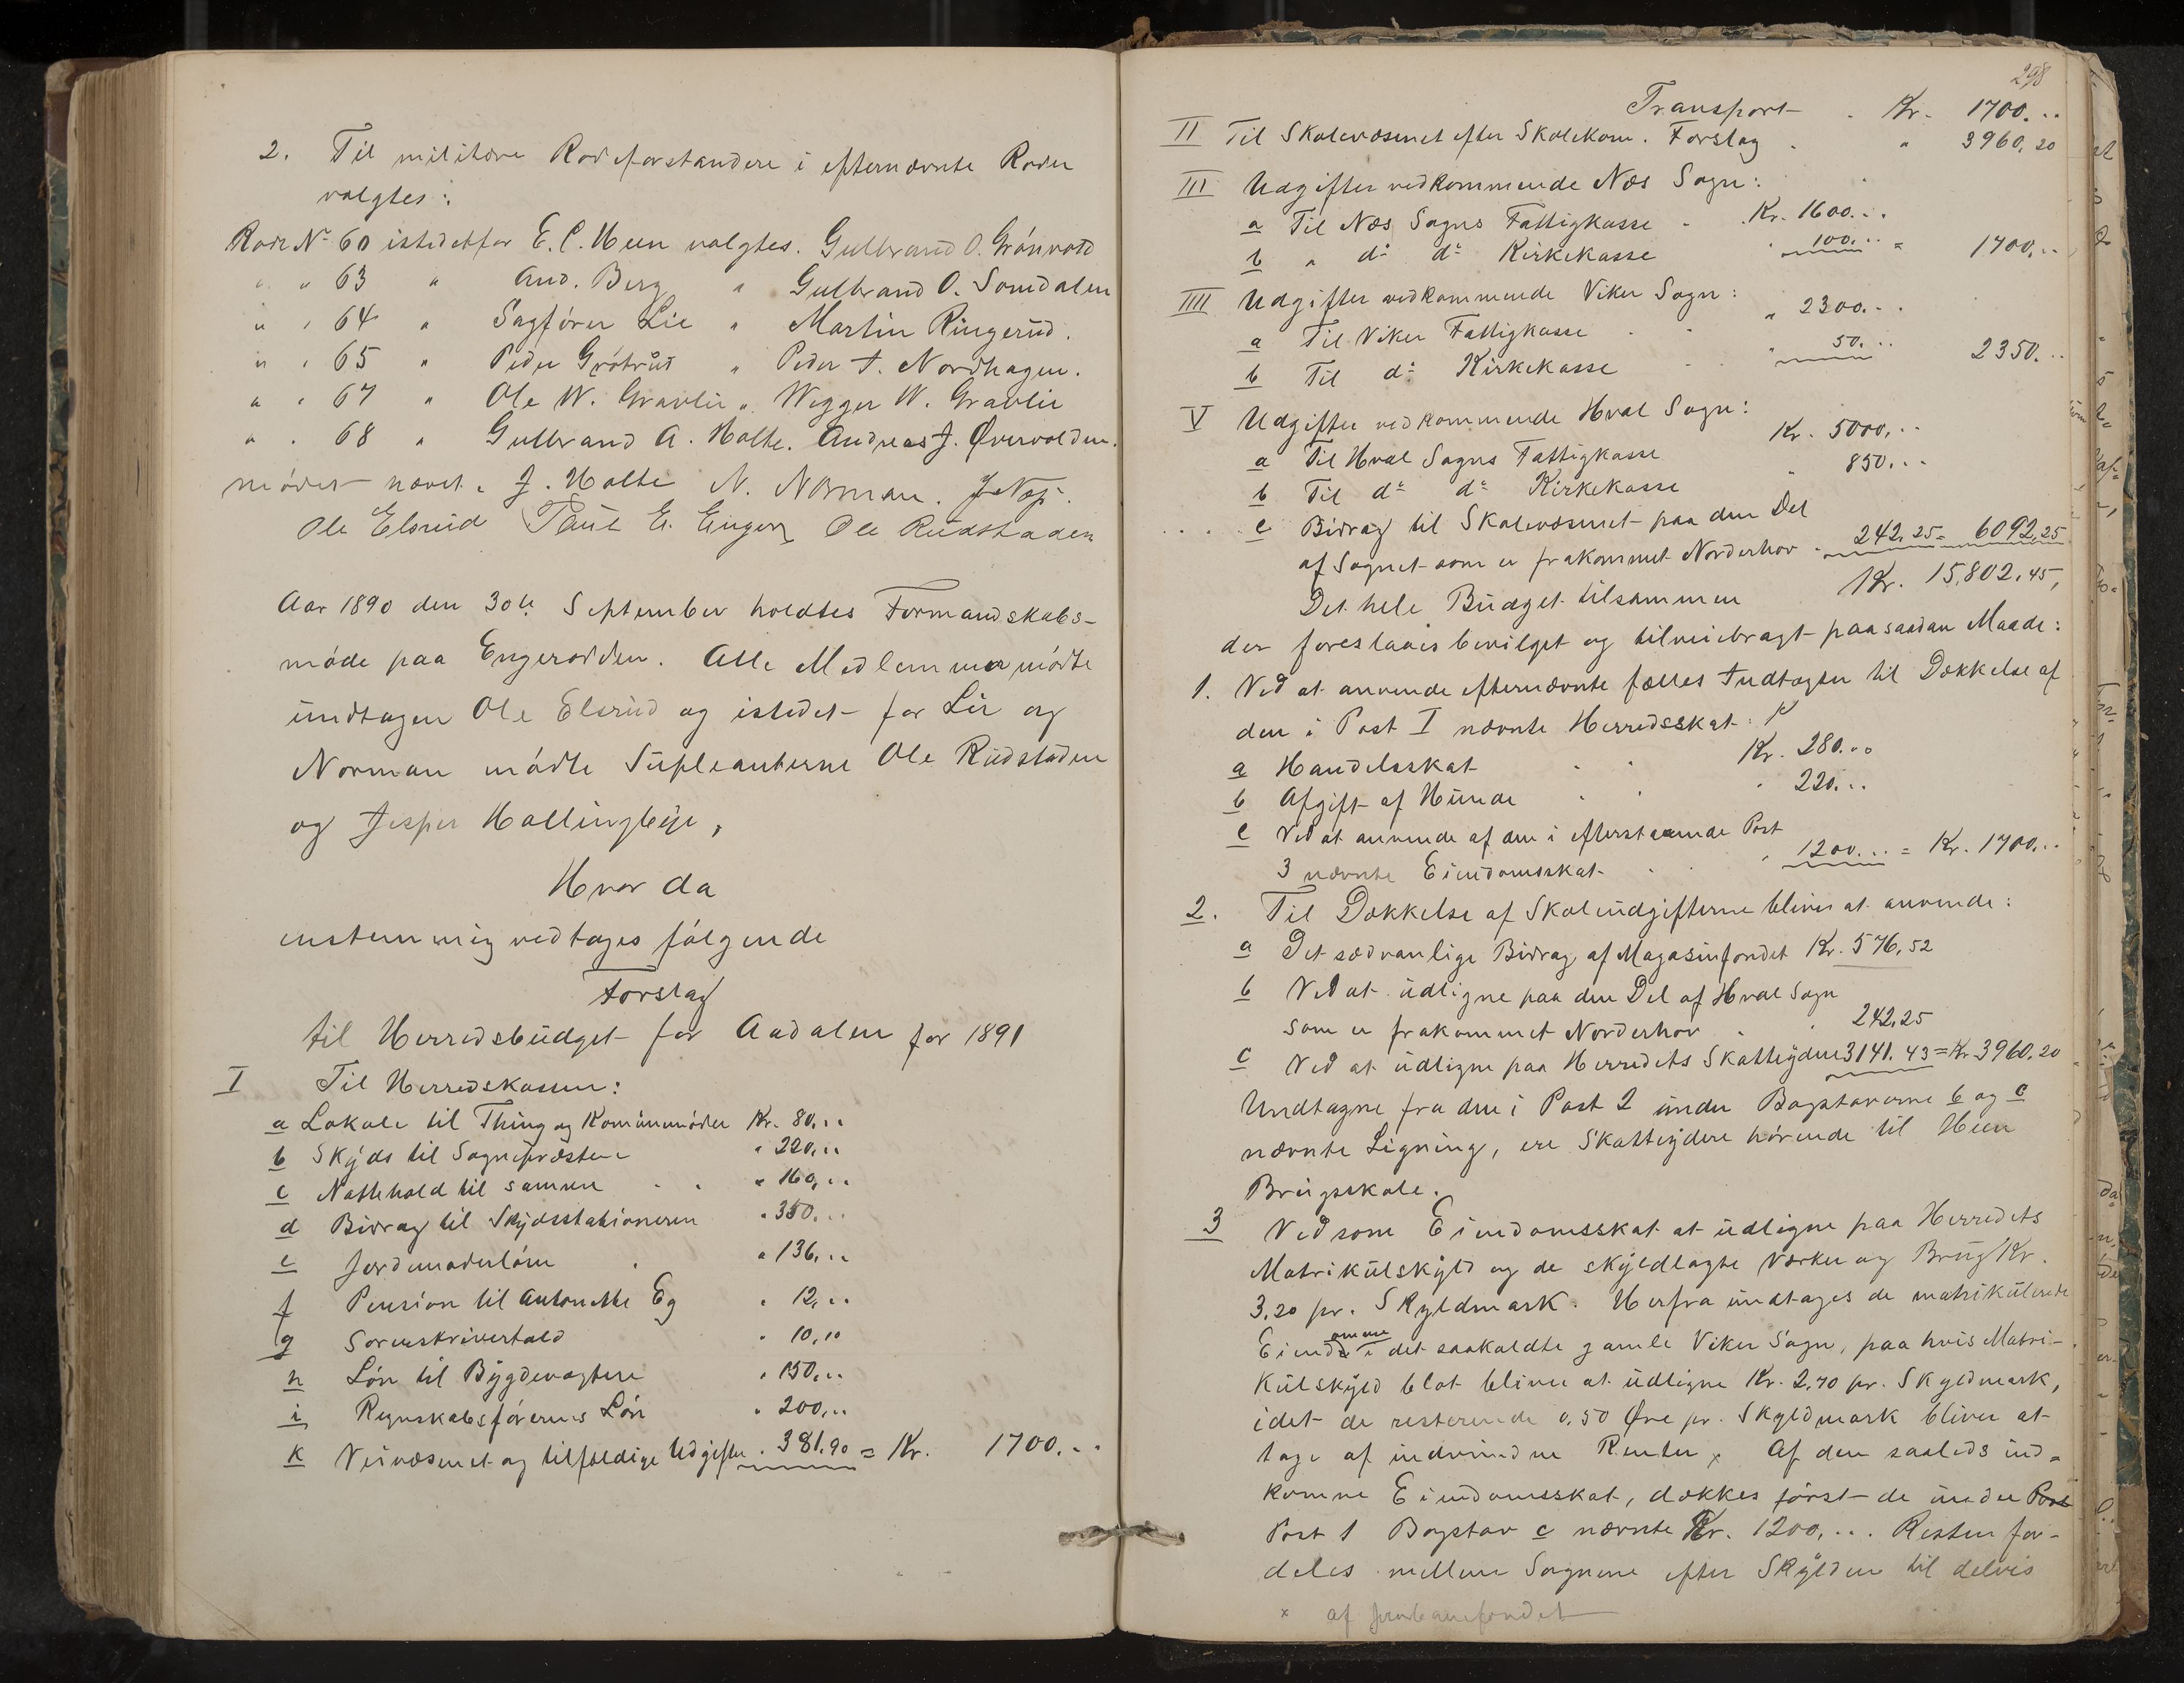 2. Til militære Rodeforstandere i efternævnte Roder
valgtes:
Rode No 60 istedetfor E. C. Heen valgtes. Gulbrand O. Grönvold
" " 63 " And. Berg " Gulbrand O. Somdalen
" " 64 " Sagförer Lie " Martin Ringerud.
" " 65 " Peder Grötrud " Peder T. Nordhagen.
" " 67 " Ole W. Gravlie " Wegger W. Gravlie
" " 68 " Gulbrand A. Holte. Andreas J. Øvervolden.
mödet hævet. J. Holte N. Norman.
Ole Elsrud Paul E. Enger Ole Rudstaden
Aar 1890 den 30te September holdtes Formandskabs-
möde paa Engerodden. Alle Medlemmer mödte
undtagen Ole Elsrud og istedet for Lie og
Norman mödte Supleanterne Ole Rudstaden
og Jesper Hallingbye,
Hvor da
enstemmig vedtages fölgende
Forslag
til Herredsbudget for Aadalen for 1891
I Til Herredskassen:
a Lokale til Thing og Komunemöder Kr. 80,..
b Skyds til Sognepræsten " 220,..
c Nattehold til samme . . " 160,..
d Bidrag til Skydsstationeren " 350...
e Jordmoderlön . " 136,..
f Pension til Antonette Eg " 12,..
g Sorenskrivertold " 10,10
h Lön til Bygdevægtere " 150,..
i Regnskabsförerens Lön " 200,..
k Veivæsenet og tilfældige Udgifter . 381.90 = Kr. 1700...
298
Transport . Kr. 1700...
II Til Skolevæsenet efter Skolekom. Forslag . " 3960,20
III Udgifter vedkommende Næs Sogn:
a Til Næs Sogns Fattigkasse . Kr. 1600...
b " do do Kirkekasse " 100... = 1700,..
IIII Udgifter vedkommende Viker Sogn:
a Til Viker Fattigkasse . . " 2300...
b Til do Kirkekasse . . " 50... 2350...
V Udgifter vedkommende Hval Sogn:
a Til Hval Sogns Fattigkasse Kr. 5000,..
b Til do do Kirkekasse " 850...
c Bidrag til Skolevæsenet paa den Del
af Sognet som er frakommet Norderhov . 242,25 = 6092,25
Det hele Budget tilsammen Kr. 15,802,45,
der foreslaaes bevilget og tilveiebragt paa saadan Maade:
1. Ved at anvende efternævnte fælles Indtægter til Dækkelse af
den i Post I nævnte Herredsskat:
a Handelsskat . . Kr. 280...
b Afgift af Hunde . . " 220...
c Ved at anvende af den i efterstaaende Post
3 nævnte Eiendomsskat . . " 1200... = Kr. 1700...
2. Til Dækkelse af Skoleudgifterne bliver at anvende:
a Det sædvanlige Bidrag af Magasinfondet Kr. 576,52
b Ved at udligne paa den Del af Hval Sogn
som er frakommet Norderhov . . 242,25
c Ved at udligne paa Herredets Skatteydere 3141.43 = Kr 3960,20
Undtagne fra den i Post 2 under Bogstaverne b og c
nævnte Ligning, ere Skatteydere hörende til Heen
Brugsskole.
3 Ved som Eiendomsskat at udligne paa Herredets
Matrikülskyld og de skyldlagte Værker og Brug Kr.
3,20 pr. Skyldmark. Herfra undtages de matrikülerede
Eiendomme i det saakaldte gamle Viker Sogn, paa hvis Matri-
külskyld blot bliver at udligne Kr. 2,70 pr. Skyldmark,
idet de resterende 0,50 Øre pr. Skyldmark bliver at
tage af indvundne Renter x Af den saaleds ind-
komne Eiendomsskat, dækkes först de under Post
Post 1 Bogstav c nævnte Kr. 1200,... Resten for-
deles mellem Sognene efter Skylden til delvis
x af jernbanefondet